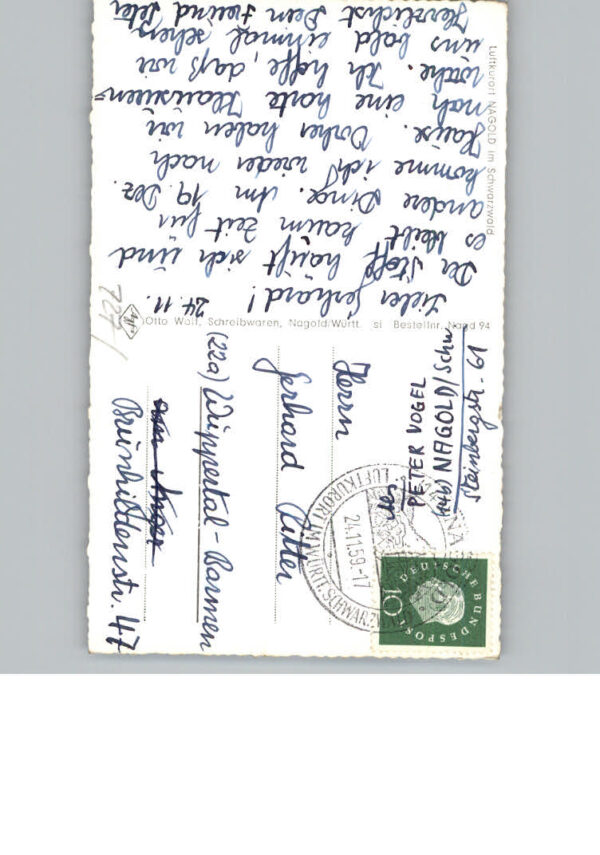 24.11.
Lieber Gerhard!
Der Stoff häuft sich und
es bleibt kaum Zeit für
andere Dinge. Am 19. Dez.
komme ich wieder nach
Hause. Vorher haben wir
noch eine harte Klausuren-
woche. Ich hoffe, daß wir
uns bald einmal sehen
Herzlichst Dein Freund Peter
Luftkurort NAGOLD im Schwarzwald
Otto Wolf, Schreibwaren, Nagold/Württ. si Bestellnr. Nagd 94
727/
Abs.
PETER VOGEL
(14b) NAGOLD/Schw
Steinbergstr. 61
Herrn
Gerhard Ritter
(22a) Wuppertal-Barmen
Brünhildenstr. 47
24.11.59.-17
LUFTKURORT IM WÜRTT. SCHWARZW
DEUTSCHE BUNDESPOST
10